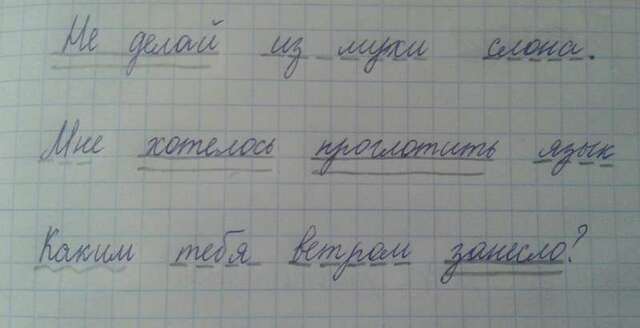 Не делай из мухи слона.
Мне хотелось проглотить язык
Каким тебя ветром занесло?